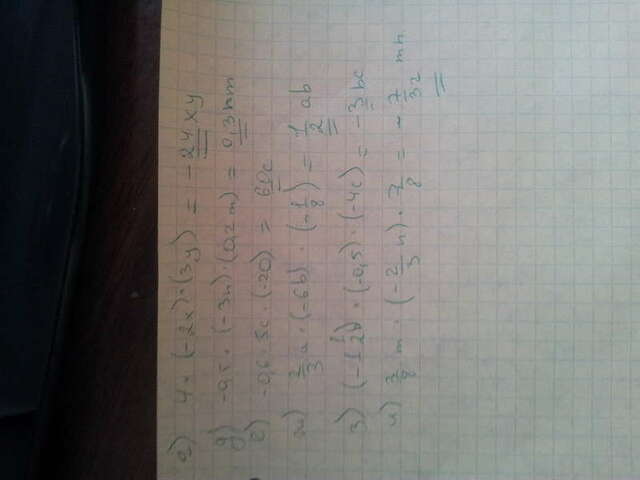 г) 4·(-2x)·(3y) = -24xy
д) -0,5·(-3n)·(0,2m) = 0,3nm
е) -0,6·5c·(-20) = 60c
ж) 2/3 a·(-6b)·(-1/8) = 1/2 ab
з) (-1 1/2 b)·(-0,5)·(-4c) = -3bc
и) 3/8 m·(-2/3 n)·7/8 = -7/32 mn